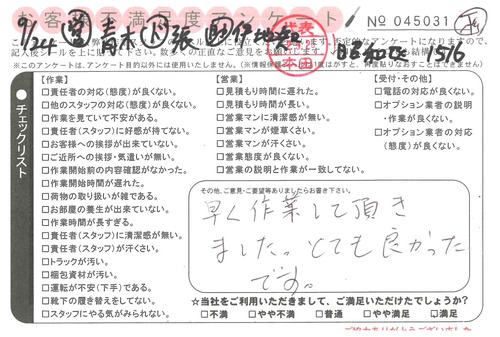 お客様不満足度アンケート
№ 045031
9/24 青木 張 伊地知
1516
※このアンケートは、アンケート目的以外には使用いたしません。
チェックリスト
【作業】
□責任者の対応(態度)が良くない。
□他のスタッフの対応(態度)が良くない。
□作業を見ていて不安がある。
□責任者(スタッフ)に好感が持てない。
□お客様への挨拶が出来ていない。
□ご近所への挨拶・気遣いが無い。
□作業開始前の内容確認がなかった。
□作業開始時間が遅れた。
□荷物の取り扱いが雑である。
□お部屋の養生が出来ていない。
□作業時間が長すぎる。
□責任者(スタッフ)に清潔感が無い。
□責任者(スタッフ)が汗くさい。
□トラックが汚い。
□梱包資材が汚い。
□運転が不安(下手)である。
□靴下の履き替えをしてない。
□スタッフにやる気がみられない。
【営業】
□見積もり時間に遅れた。
□見積もり時間が長い。
□営業マンに清潔感が無い。
□営業マンが煙草くさい。
□営業マンが汗くさい。
□営業態度が良くない。
□営業の説明と作業が一致してない。
【受付・その他】
□電話の対応が良くない。
□オプション業者の説明
・作業が良くない。
□オプション業者の対応
(態度)が良くない。
その他、ご意見・ご要望等ありましたらお書き下さい。
早く作業して頂き
ました。とても良かった
です。
☆当社をご利用いただきまして、ご満足いただけたでしょうか?
□不満 □やや不満 □普通 □やや満足 ☑満足
ご協力ありがとうございました